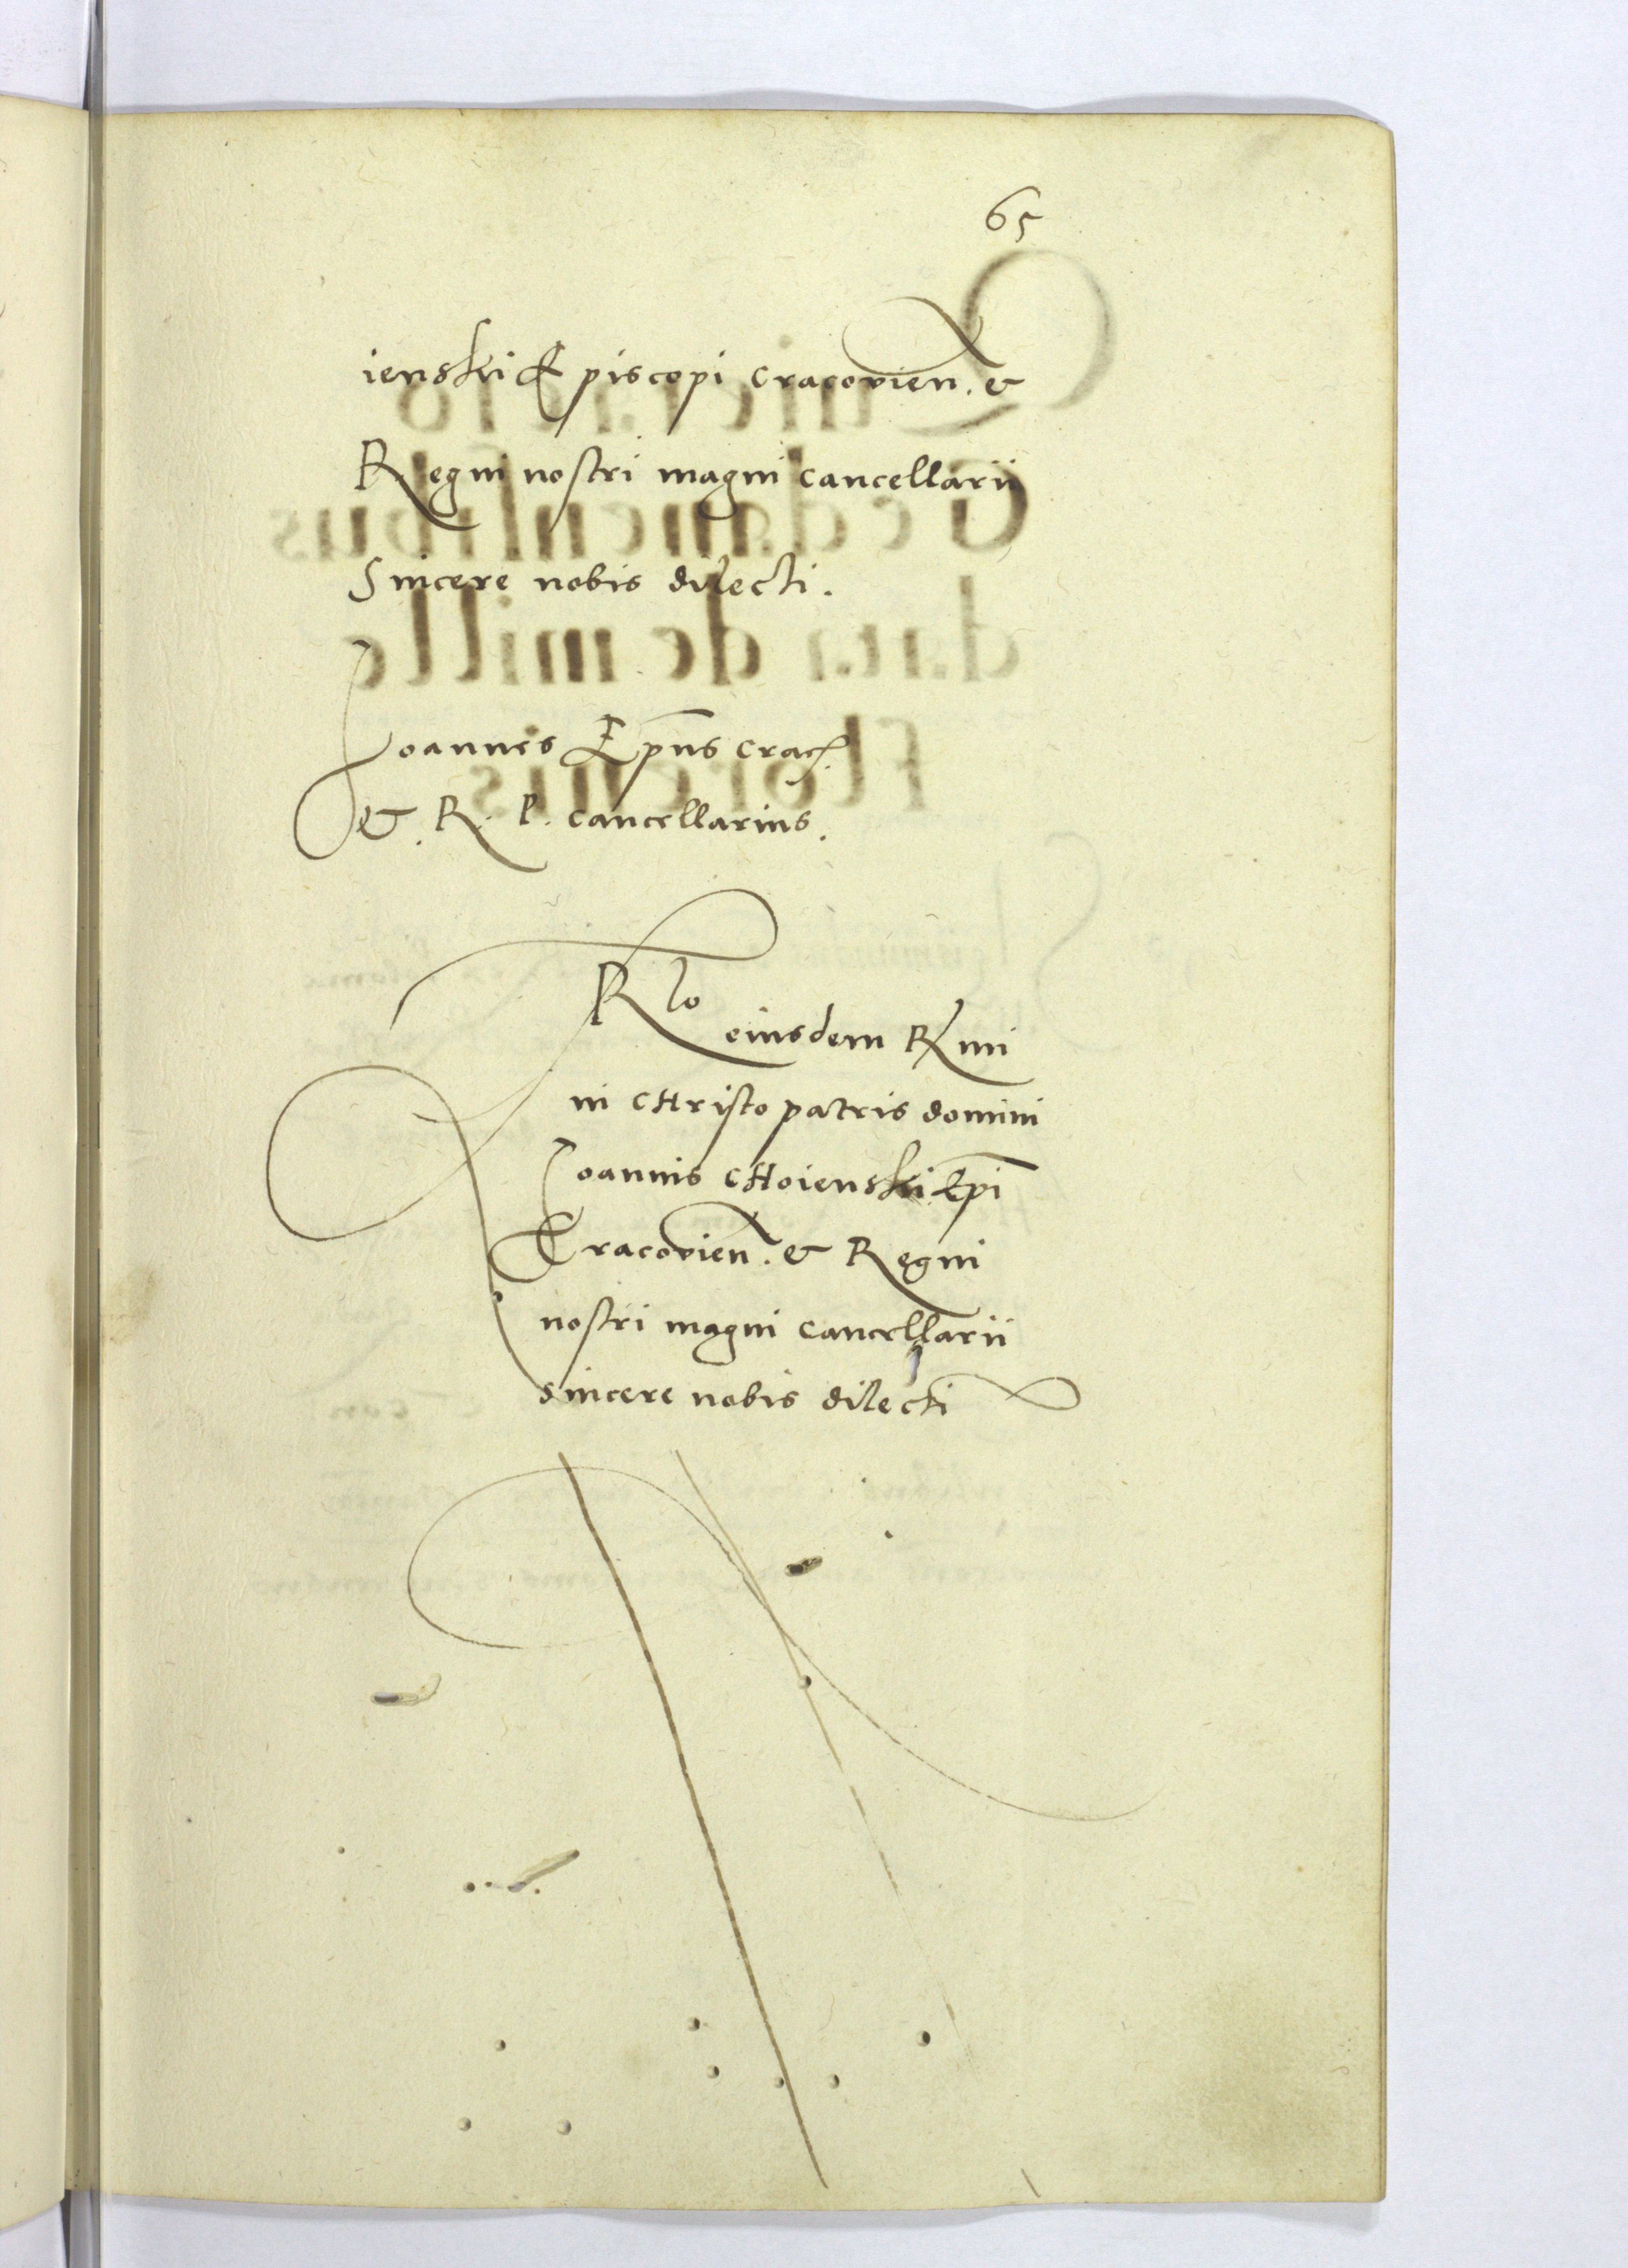 65
ienski Episcopi Cracovien. &
Regni nostri magni cancellarii
Sincere nobis dilecti.
Joannes Epus Crac.
&. R. P. cancellarius.
Rlo
eiusdem Rmi
in CHristo patris domini
Joannis CHoienski Epi
Cracovien. & Regni
nostri magni cancellarii
sincere nobis dilecti